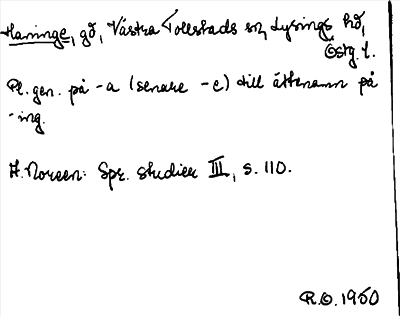 Haninge, gd, Västra Tollstads sn, Lysings hd,
Östg. l.
Pl. gen. på -a (senare -e) till ättenamn på
-ing.
A. Noreen: Spr. studier III, s. 110.
R.O. 1950